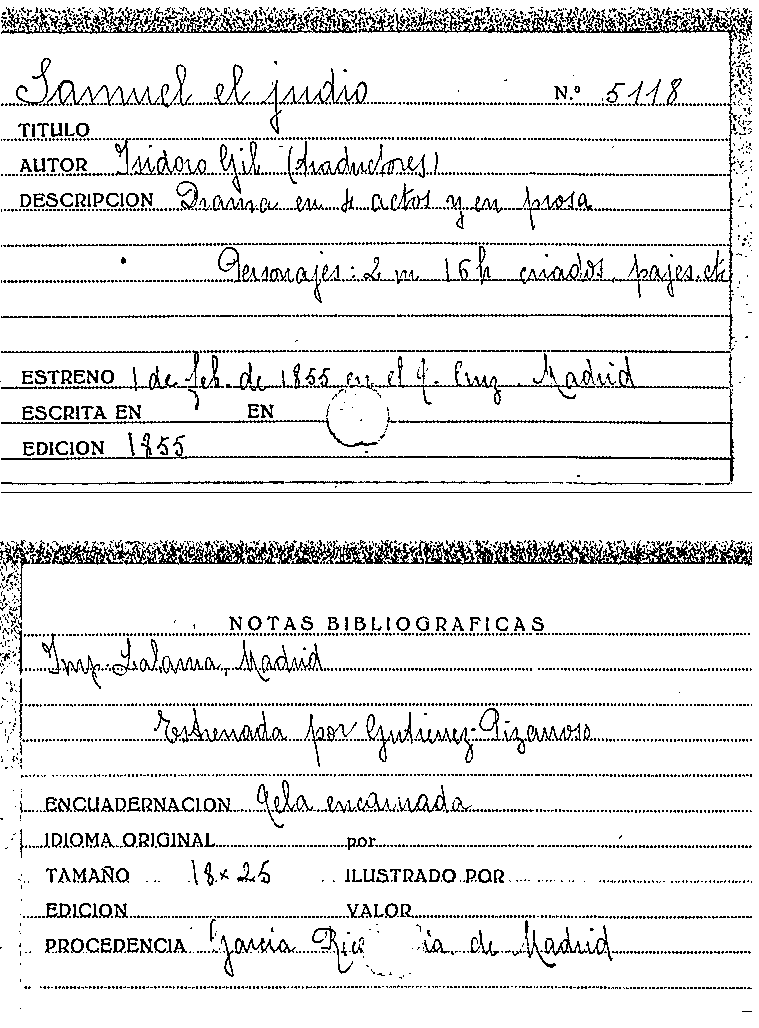 Samuel el judio N.º 5118
TITULO
AUTOR Isidoro Gil (traductores)
DESCRIPCION Drama en 4 actos y en prosa
Personajes: 2 m 16 h criados, pajes. etc
ESTRENO 1 de feb. de 1855 en el T. Cruz. Madrid
ESCRITA EN EN
EDICION 1855
NOTAS BIBLIOGRAFICAS
Imp. Lalama, Madrid
Estrenada por Gutierrez-Pizarroso
ENCUADERNACION Tela encarnada
IDIOMA ORIGINAL por
TAMAÑO 18 x 25 ILUSTRADO POR
EDICION VALOR
PROCEDENCIA Garcia de Madrid